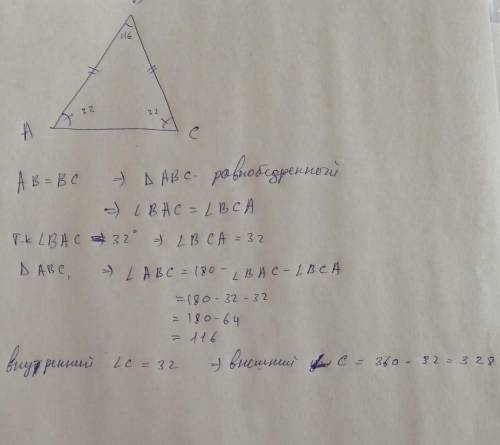 116
32 32
A C
AB = BC => △ABC - равнобедренный
=> ∠BAC = ∠BCA
т.к ∠BAC = 32° => ∠BCA = 32
△ABC, => ∠ABC = 180 - ∠BAC - ∠BCA
= 180 - 32 - 32
= 180 - 64
= 116
внутренний ∠C = 32 => внешний ∠C = 360 - 32 = 328